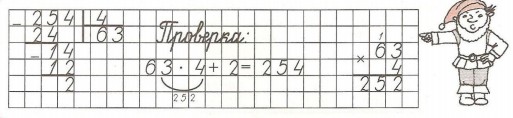 - 254 4
24 63
- 14
12
2
Проверка:
63 · 4 + 2 = 254
252
1
63
× 4
252